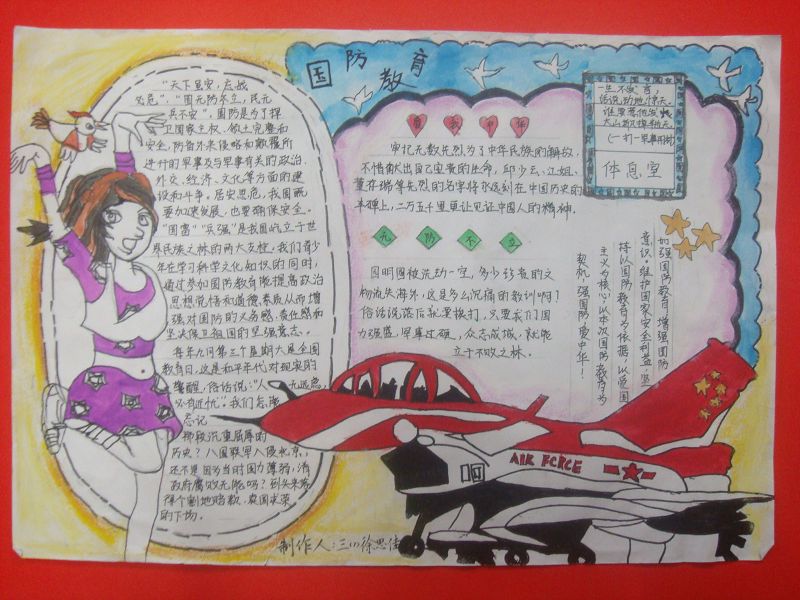 国防教育
"天下虽安，忘战
必危"，"国无防不立，民无
兵不安"，国防是为了捍
卫国家主权、领土完整和
安全，防备外来侵略和颠覆所
进行的军事及与军事有关的政治、
外交、经济、文化等方面的建
设和斗争。居安思危，我国既
要加速发展，也要确保安全。
"国富""兵强"是我国屹立于世
界民族之林的两大支柱，我们青少
年在学习科学文化知识的同时，
通过参加国防教育能提高政治
思想觉悟和道德素质从而增
强对国防的义务感、责任感和
坚决保卫祖国的坚强意志。
每年九月第三个星期六是全国
教育日，这是和平年代对现实的
警醒，俗话说："人无远虑，
必有近忧"。我们怎能
忘记
那段沉重屈辱的
历史？八国联军入侵北京，
还不是因为当时国力薄弱，清
政府腐败无能吗？到头来落
得个割地赔款，卖国求荣
的下场。
爱我中华
牢记无数先烈为了中华民族的解放，
不惜献出自己宝贵的生命，邱少云、江姐、
董存瑞等先烈的名字将永远刻在中国历史的
丰碑上，二万五千里更让见证中国人的精神。
无防不立
圆明园被洗劫一空，多少珍贵的文
物流失海外，这是多么沉痛的教训啊？
俗话说落后就要挨打，只要我们国
力强盛，军事过硬，众志成城，就能
立于不败之林。
一生不发言，
话说动地惊天。
谁要惹他发
大山都
（一打一军事用物）
休息室
加强国防教育，增强国防
意识，维护国家安全利益，坚
持以国防教育为依据，以爱国
主义为核心，以本次国防教育为
契机，强国防爱中华！
AIR FORCE
制作人：三(1)徐思佳